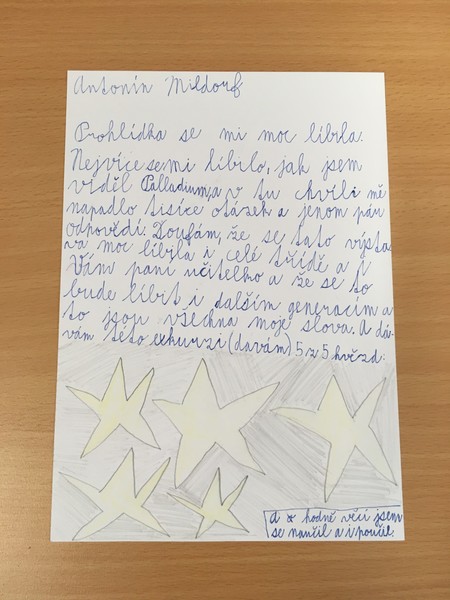 Antonín Mildorf
Prohlídka se mi moc líbila.
Nejvíce se mi líbilo, jak jsem
viděl Palladium, a v tu chvíli mě
napadlo tisíce otázek a jenom pár
odpovědí. Doufám, že se tato výsta
va moc líbila i celé třídě a i
Vám paní učitelko a že se to
bude líbit i dalším generacím a
to jsou všechna moje slova. A dá-
vám této exkurzi (davám) 5 z 5 hvězd.
a hodně věcí jsem
se naučil a i poučil.